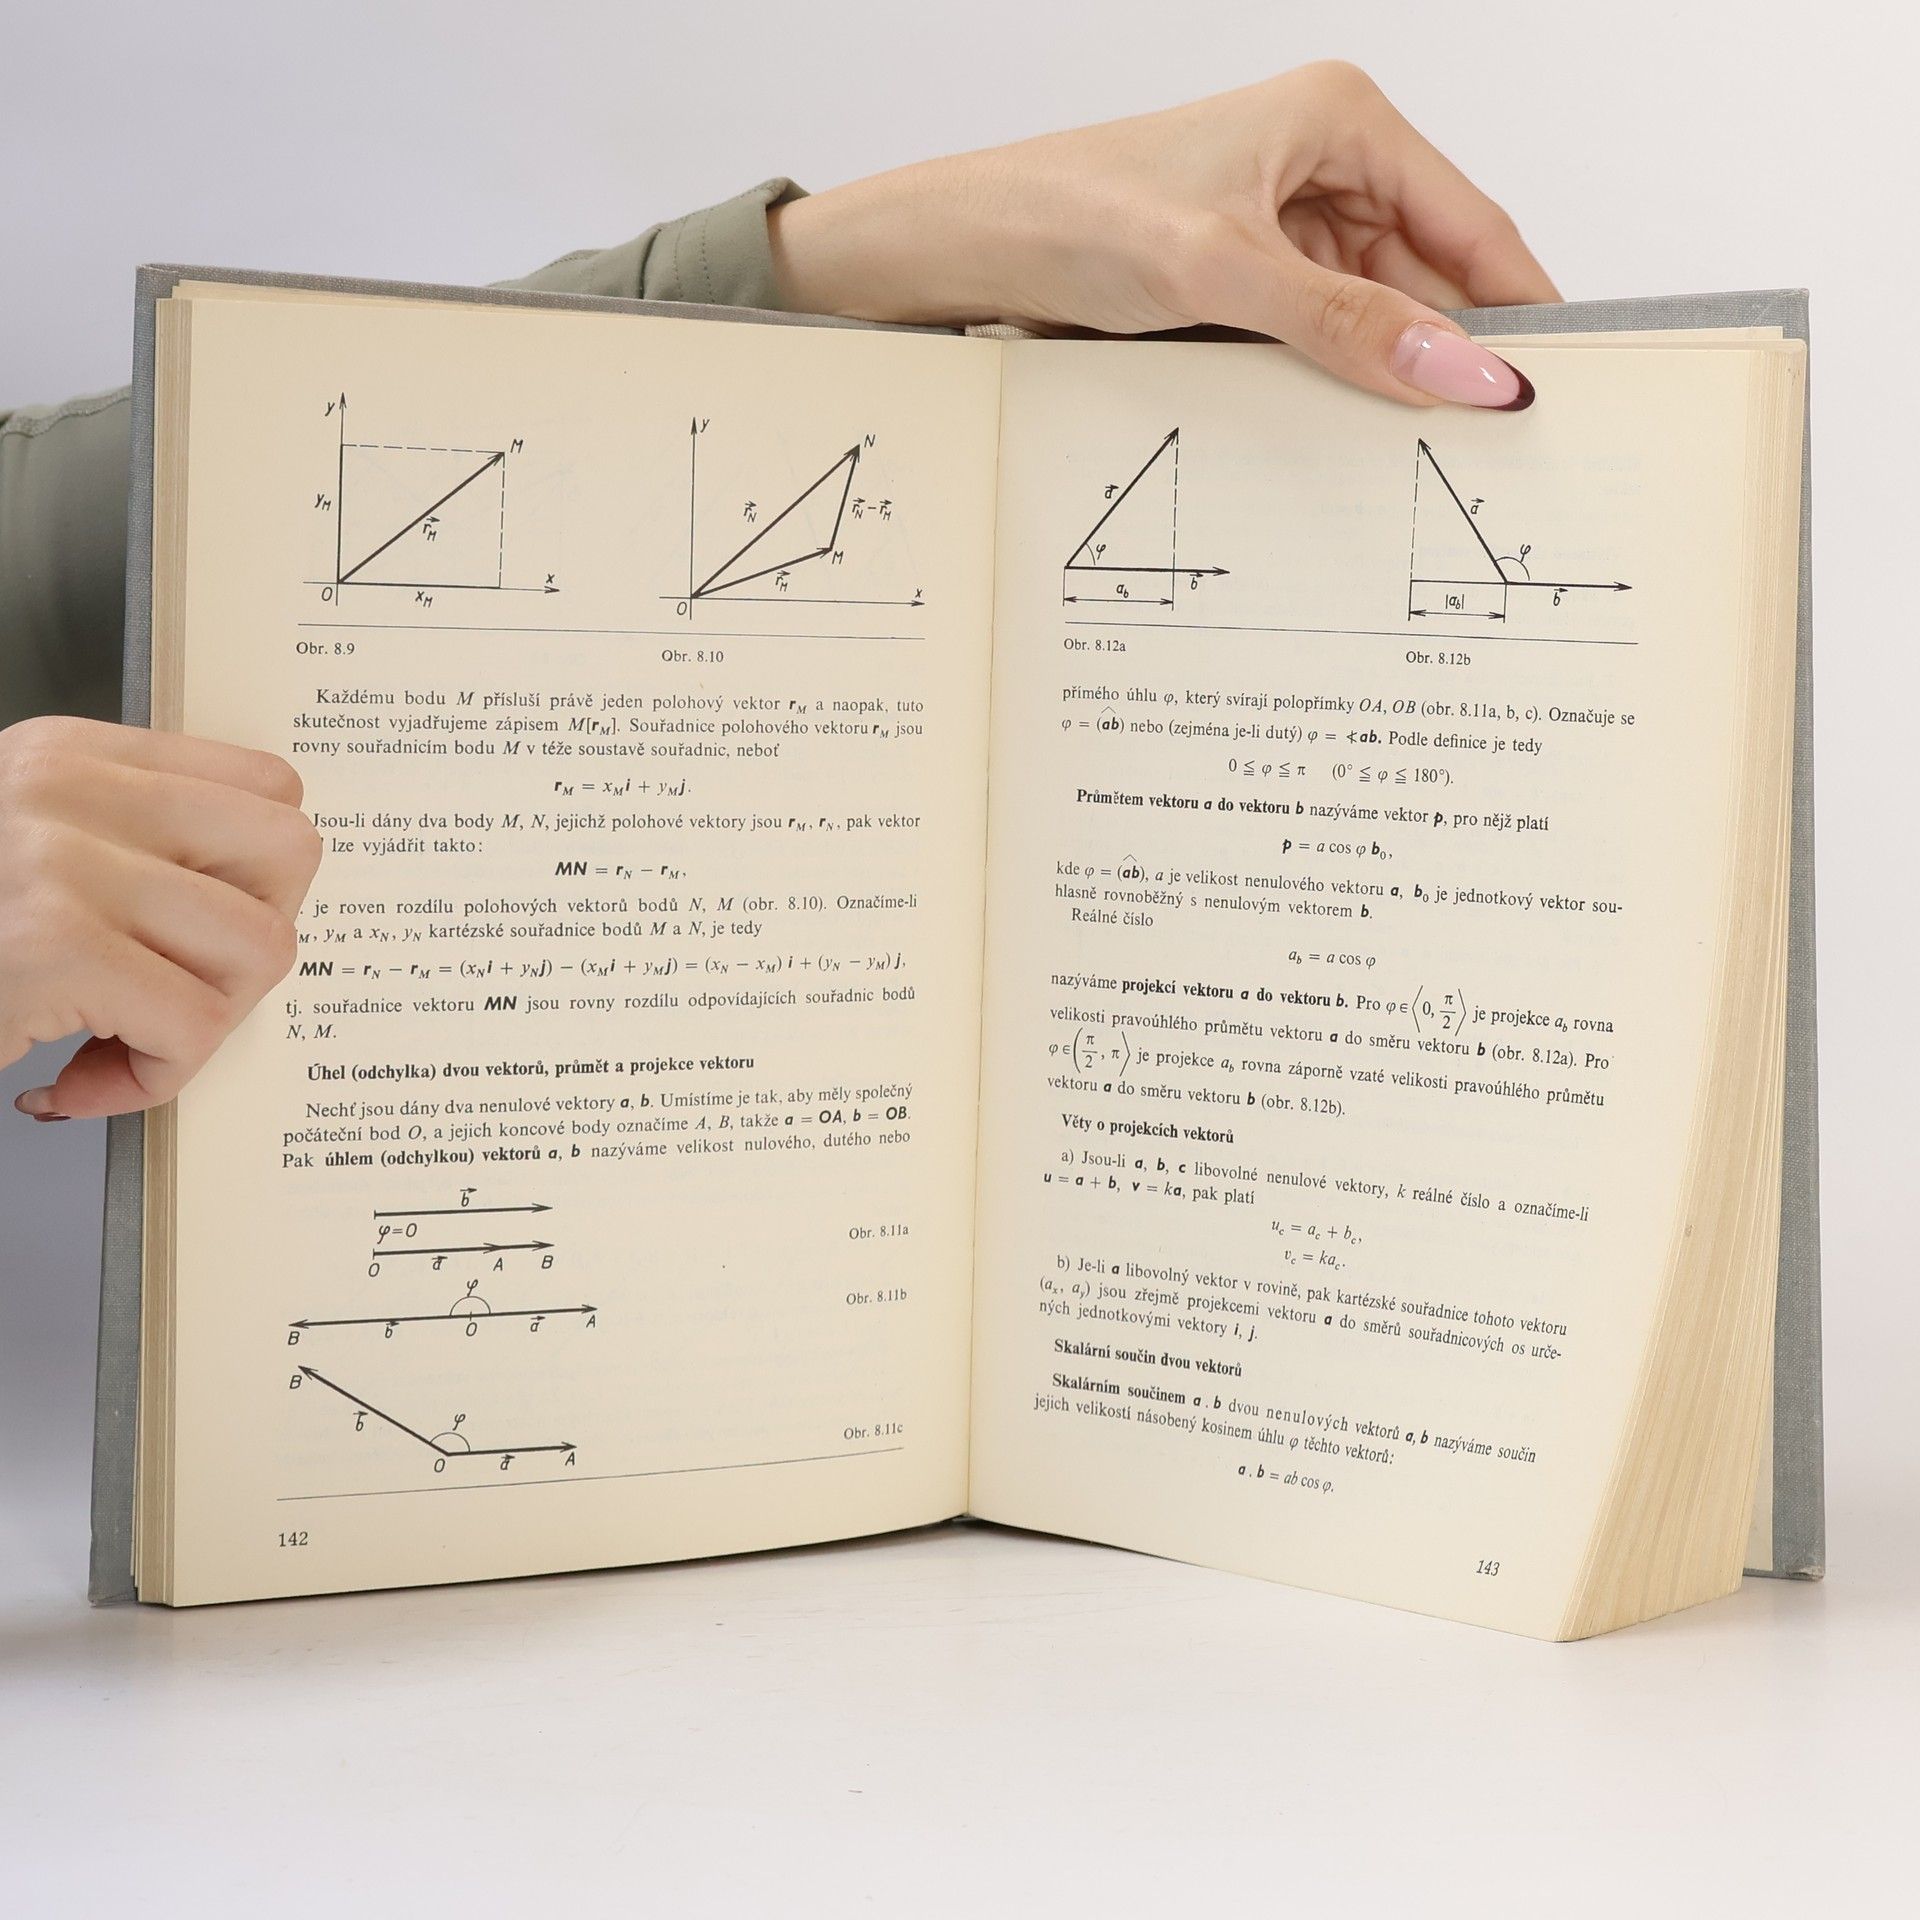 y
M
y_M
r⃗_M
O
x_M
x
Obr. 8.9
y
N
r⃗_N
r⃗_N − r⃗_M
M
r⃗_M
O
x
Obr. 8.10
Každému bodu M přísluší právě jeden polohový vektor r_M a naopak, tuto
skutečnost vyjadřujeme zápisem M[r_M]. Souřadnice polohového vektoru r_M jsou
rovny souřadnicím bodu M v téže soustavě souřadnic, neboť
r_M = x_M i + y_M j.
Jsou-li dány dva body M, N, jejichž polohové vektory jsou r_M, r_N, pak vektor
lze vyjádřit takto:
MN = r_N − r_M,
. je roven rozdílu polohových vektorů bodů N, M (obr. 8.10). Označíme-li
_M, y_M a x_N, y_N kartézské souřadnice bodů M a N, je tedy
MN = r_N − r_M = (x_N i + y_N j) − (x_M i + y_M j) = (x_N − x_M) i + (y_N − y_M) j,
tj. souřadnice vektoru MN jsou rovny rozdílu odpovídajících souřadnic bodů
N, M.
Úhel (odchylka) dvou vektorů, průmět a projekce vektoru
Nechť jsou dány dva nenulové vektory a, b. Umístíme je tak, aby měly společný
počáteční bod O, a jejich koncové body označíme A, B, takže a = OA, b = OB.
Pak úhlem (odchylkou) vektorů a, b nazýváme velikost nulového, dutého nebo
b⃗
φ=0
O a⃗ A B
Obr. 8.11a
φ
B b⃗ O a⃗ A
Obr. 8.11b
B
b⃗
φ
O a⃗ A
Obr. 8.11c
142
a⃗
φ
b⃗
a_b
Obr. 8.12a
a⃗
φ
b⃗
|a_b|
Obr. 8.12b
přímého úhlu φ, který svírají polopřímky OA, OB (obr. 8.11a, b, c). Označuje se
φ = (ab) nebo (zejména je-li dutý) φ = ∢ab. Podle definice je tedy
0 ≦ φ ≦ π (0° ≦ φ ≦ 180°).
Průmětem vektoru a do vektoru b nazýváme vektor p, pro nějž platí
p = a cos φ b₀,
kde φ = (ab), a je velikost nenulového vektoru a, b₀ je jednotkový vektor sou-
hlasně rovnoběžný s nenulovým vektorem b.
Reálné číslo
a_b = a cos φ
nazýváme projekcí vektoru a do vektoru b. Pro φ ∈ ⟨0, π/2⟩ je projekce a_b rovna
velikosti pravoúhlého průmětu vektoru a do směru vektoru b (obr. 8.12a). Pro
φ ∈ (π/2, π⟩ je projekce a_b rovna záporně vzaté velikosti pravoúhlého průmětu
vektoru a do směru vektoru b (obr. 8.12b).
Věty o projekcích vektorů
a) Jsou-li a, b, c libovolné nenulové vektory, k reálné číslo a označíme-li
u = a + b, v = ka, pak platí
u_c = a_c + b_c,
v_c = ka_c.
b) Je-li a libovolný vektor v rovině, pak kartézské souřadnice tohoto vektoru
(a_x, a_y) jsou zřejmě projekcemi vektoru a do směrů souřadnicových os urče-
ných jednotkovými vektory i, j.
Skalární součin dvou vektorů
Skalárním součinem a . b dvou nenulových vektorů a, b nazýváme součin
jejich velikostí násobený kosinem úhlu φ těchto vektorů:
a . b = ab cos φ.
143